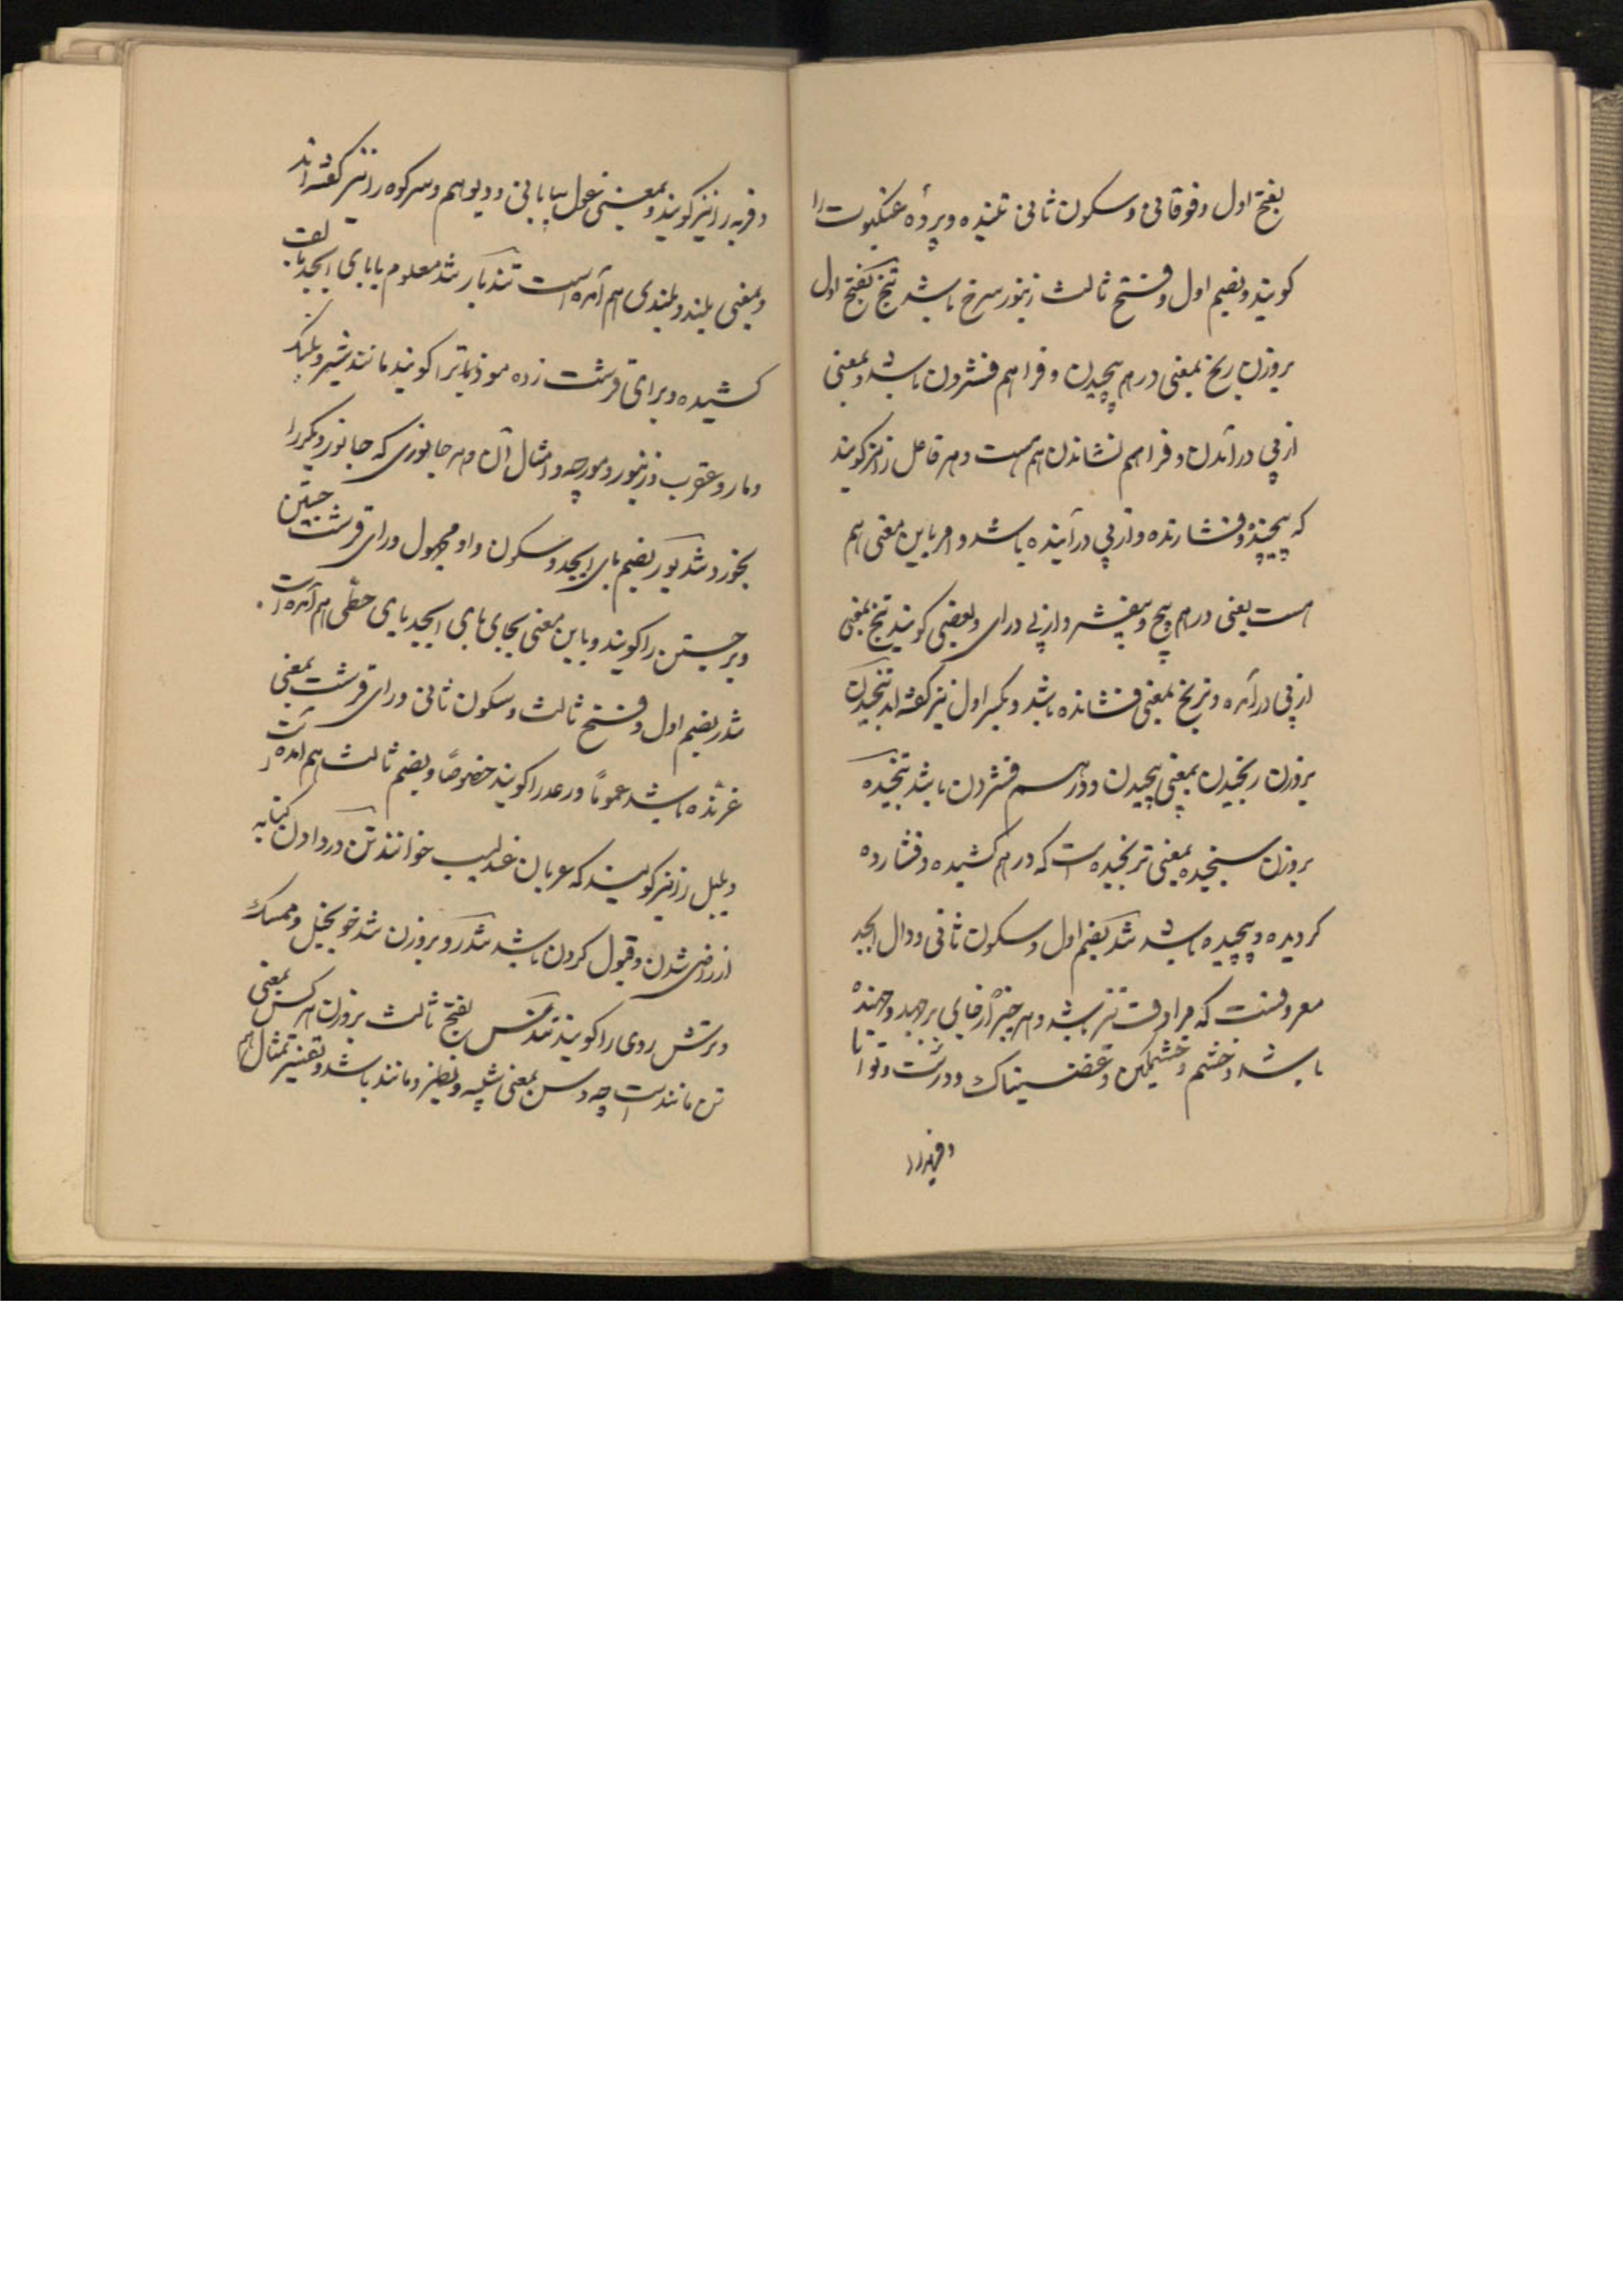 بفتح اول و فوقانی و سکون ثانی تننده و پردهٔ عنکبوت را
کویند و بضم اول و فتح ثالث زنبور سرخ باشد تنج بفتح اول
بروزن رنج بمعنی درهم پیچیدن و فراهم فشردن باشد و بمعنی
از پی درآمدن و فراهم نشاندن هم هست و هر فاعل را نیز کویند
که پیچنده و فشارنده و از پی درآینده باشد و امر باین معنی هم
هست یعنی درهم پیچ و بیفشر و از پی درای و بعضی کویند تنج بمعنی
از پی درآمده و ترنج بمعنی فشانده باشد و بکسر اول نیز کفته اند تنجیدن
بروزن رنجیدن بمعنی پیچیدن و درهم فشردن باشد تنجیده
بروزن سنجیده بمعنی ترنجیده است که درهم کشیده و فشارده
کردیده و پیچیده باشد تند بضم اول و سکون ثانی و دال ابجد
معروفست که مرادف تیز باشد و هر چیز از جای برجهد و جهنده
باشد و خشم و خشمکین و غضبناک و درشت و توانا
و فربه را
و فربه را نیز کویند و بمعنی غول بیابانی و دیو هم و سر کوه را نیز کفته اند
و بمعنی بلند و بلندی هم آمده است تندبار تند معلوم با بای ابجد بالف
کشیده و برای قرشت زده موذیاترا کویند مانند شیر و پلنک
و مار و عقرب و زنبور و مورچه و امثال آن و هر جانوری که جانور دیکر را
بخورد تندبور بضم بای ابجد و سکون واو مجهول و رای قرشت جستن
و برجستن را کویند و باین معنی بجای بای ابجد یای حطی هم آمده است
تندر بضم اول و فتح ثالث و سکون ثانی و رای قرشت بمعنی
غرنده باشد عموماً و رعد را کویند خصوصاً و بضم ثالث هم آمده است
و بلبل را نیز کویند که عربان عندلیب خوانند تن در دادن کنایه
از راضی شدن و قبول کردن باشد تندرو بروزن تندخو بخیل و ممسک
و ترش روی را کویند تندس بفتح ثالث بروزن هرکس بمعنی
تن مانند است چه دس بمعنی شبیه و نظیر و مانند باشد و تفسیر تمثال هم